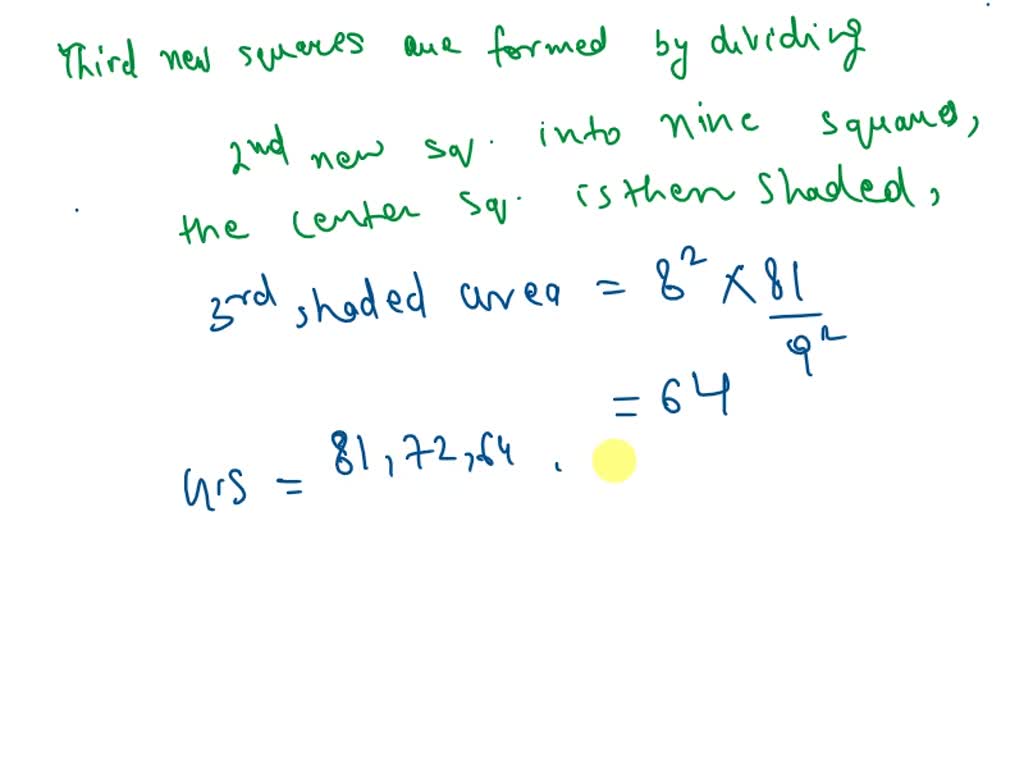 Third new squares are formed by dividing
2nd new sq. into nine squares,
the center sq. is then shaded,
3rd shaded area = 8² × 81/9²
= 64
G.S = 81, 72, 64 .